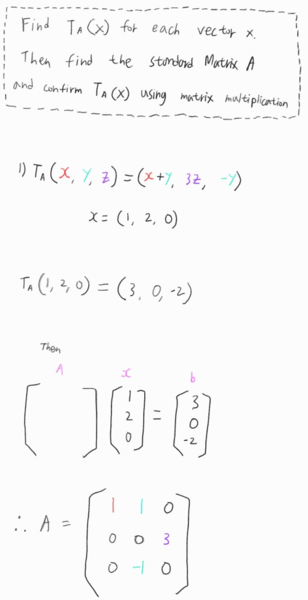 Find TA(x) for each vector x.
Then find the standard Matrix A
and confirm TA(x) using matrix multiplication
1) TA(x, y, z) = (x+y, 3z, -y)
x = (1, 2, 0)
TA(1, 2, 0) = (3, 0, -2)
Then
A x b
[ ] [1 2 0] = [3 0 -2]
∴ A = [1 1 0
0 0 3
0 -1 0]